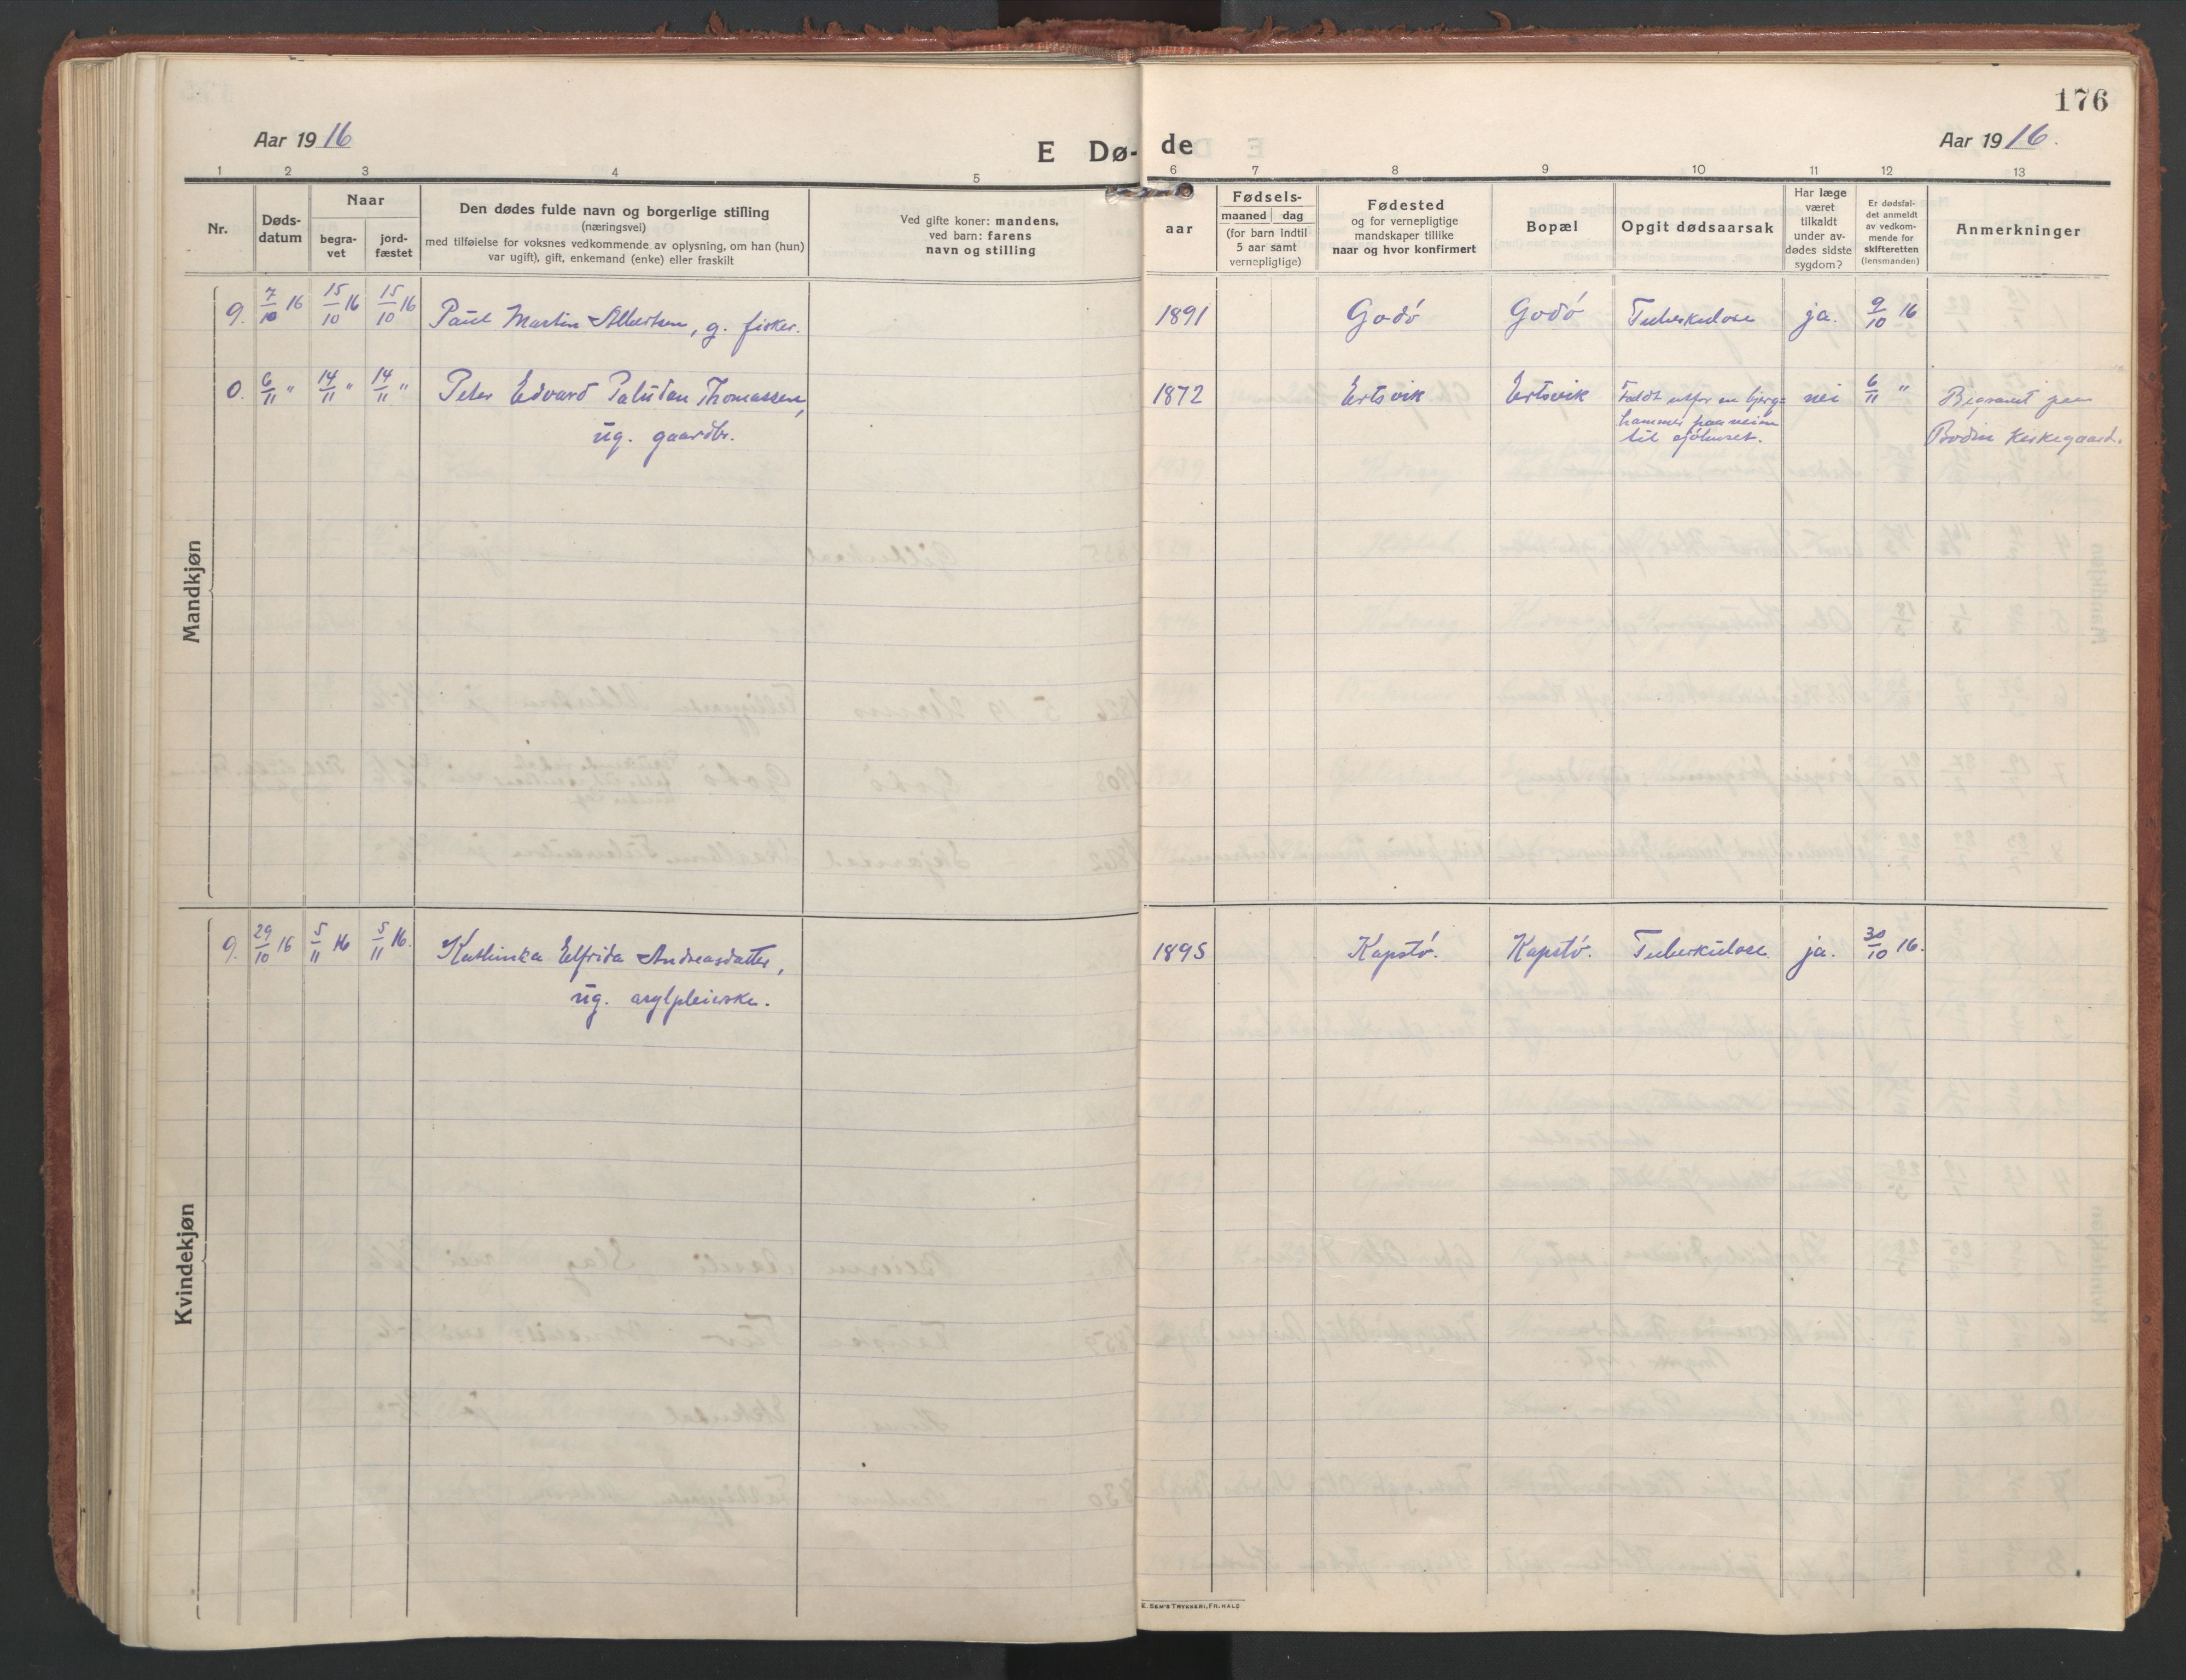 176
Aar 1916
E Dø-
de
Aar 1916.
1 2 3 4 5 6 7 8 9 10 11 12 13
Nr.
Døds-
datum
Naar
begra-
vet
jord-
fæstet
Den dødes fulde navn og borgerlige stilling
(næringsvei)
med tilføielse for voksnes vedkommende av oplysning, om han (hun)
var ugift), gift, enkemand (enke) eller fraskilt
Ved gifte koner: mandens,
ved barn: farens
navn og stilling
aar
Fødsels-
maaned dag
(for barn indtil
5 aar samt
vernepligtige)
Fødested
og for vernepligtige
mandskaper tillike
naar og hvor konfirmert
Bopæl
Opgit dødsaarsak
Har læge
været
tilkaldt
under av-
dødes sidste
sygdom?
Er dødsfal-
det anmeldt
av vedkom-
mende for
skifteretten
(lensmanden)
Anmerkninger
Mandkjøn
9. 7/10 16 15/10 16 15/10 16 Paul Martin Albertsen, g. fisker. 1891 Godö Godö Tuberkulose ja. 9/10 16
0. 6/11 " 14/11 " 14/11 " Peter Edvard Paludan Thomassen, 1872 Ertsvik Ertsvik Faldt utfor en bjerg= nei 6/11 " Begravet paa
ug. gaardbr. hammer paa veien Bodin kirkegaard.
til sjöhuset.
Kvindekjøn
9. 29/10 16 5/11 16 5/11 16. Kathinka Elfrida Andreasdatter, 1895 Kapstö. Kapstö. Tuberkulose. ja. 30/10 16.
ug. asylpleierske.
E. SEM'S TRYKKERI, FR.HALD